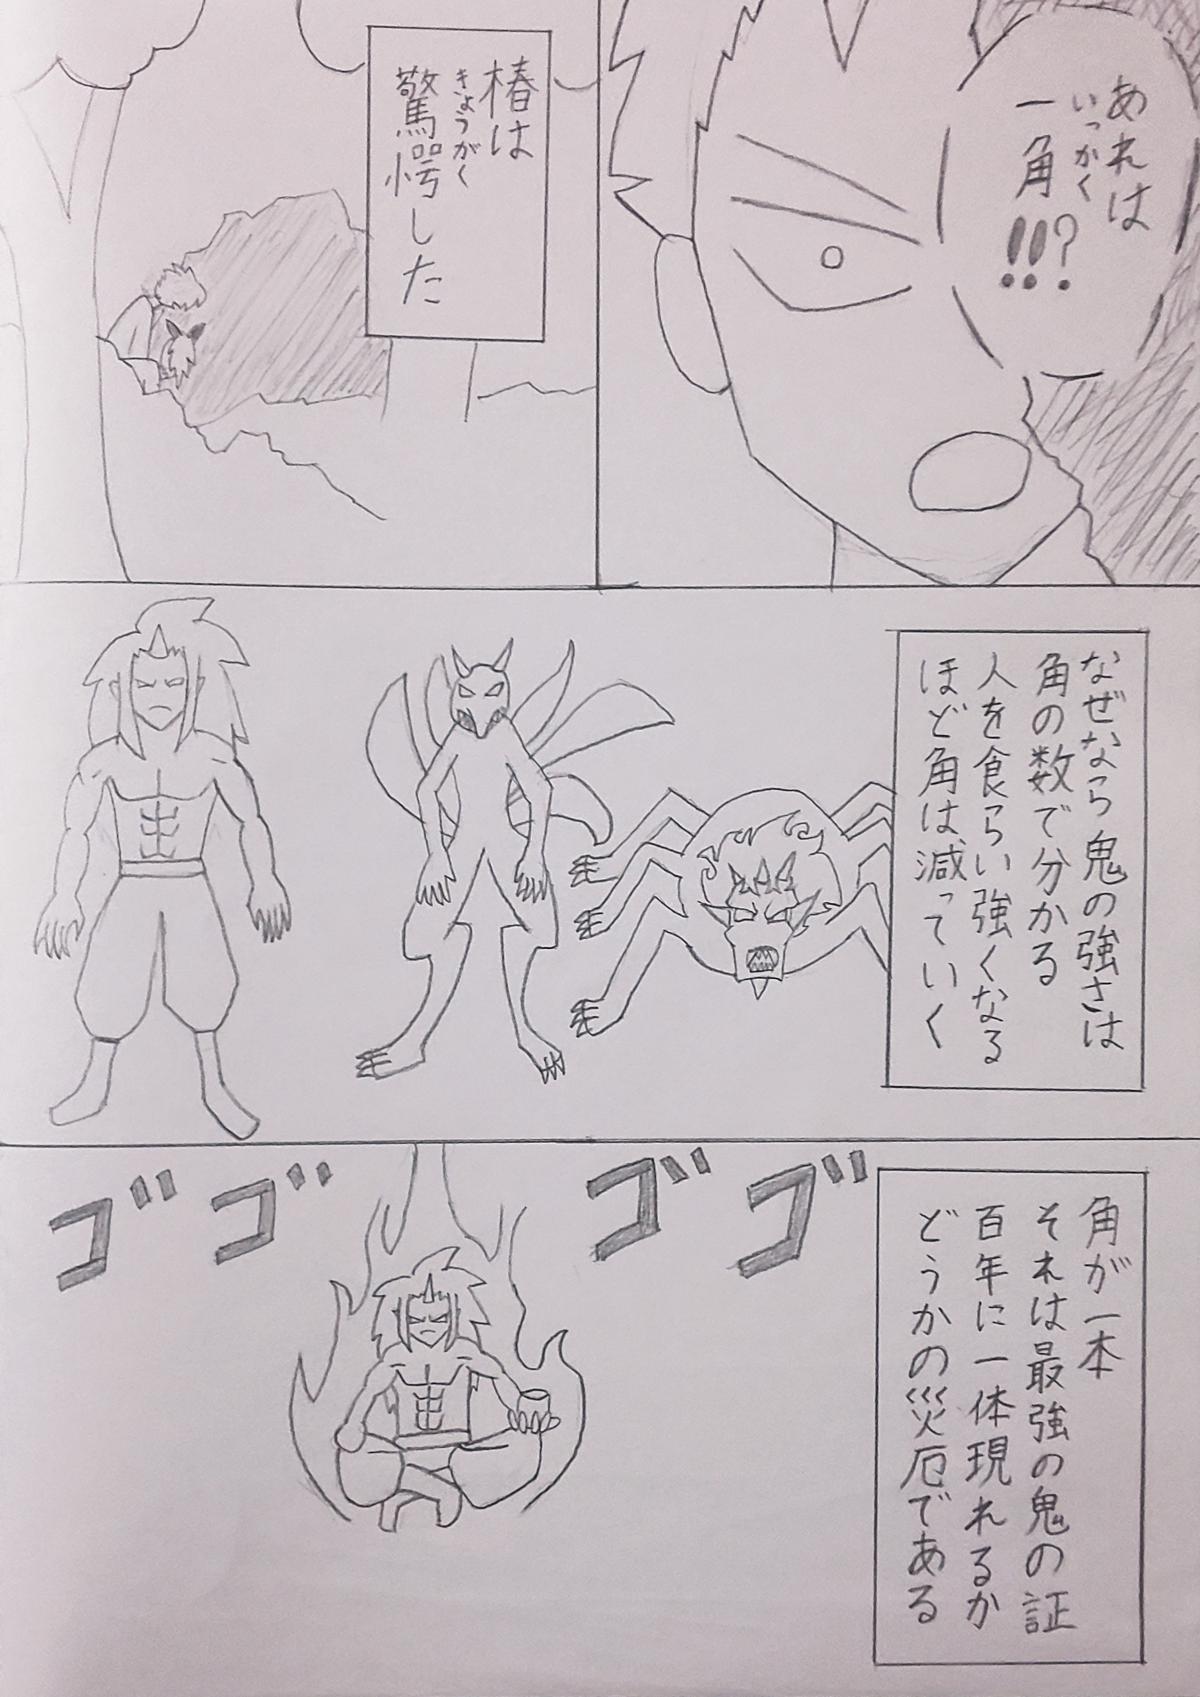 あれは
いっかく
一角!!?
椿は
きょうがく
驚愕した
なぜなら鬼の強さは
角の数で分かる
人を食らい強くなる
ほど角は減っていく
角が一本
それは最強の鬼の証
百年に一体現れるか
どうかの災厄である
ゴゴゴゴ